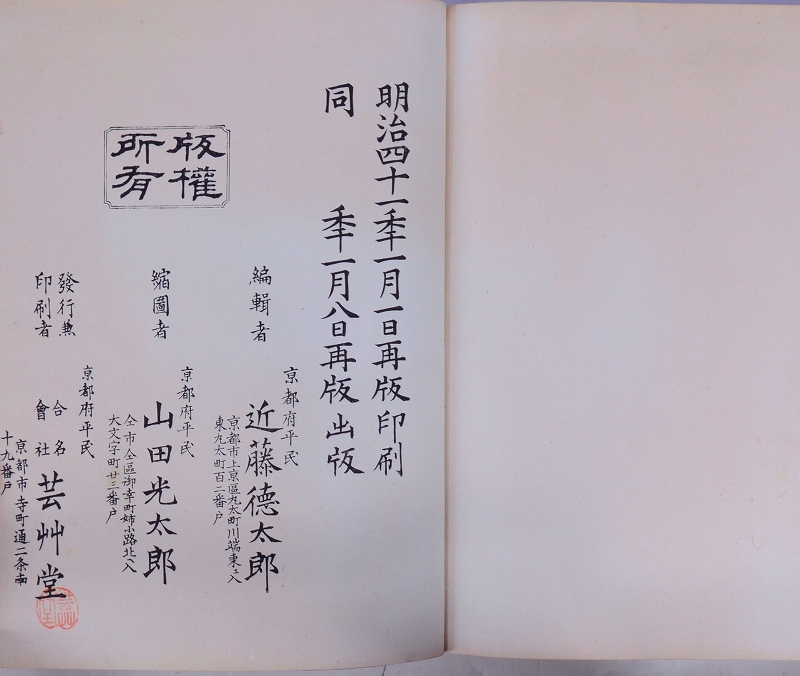 明治四十一秊一月一日再版印刷
同　　秊一月八日再版出版
版權
所有
編輯者
京都府平民
近藤德太郎
京都市上京區丸太町川端東ヱ入
東丸太町百二番戶
縮圖者
京都府平民
山田光太郎
仝市仝區御幸町姉小路北ヘ入
大文字町廿三番戶
發行兼
印刷者
京都府平民
合名
會社
芸艸堂
京都市寺町通二条南
十九番戶